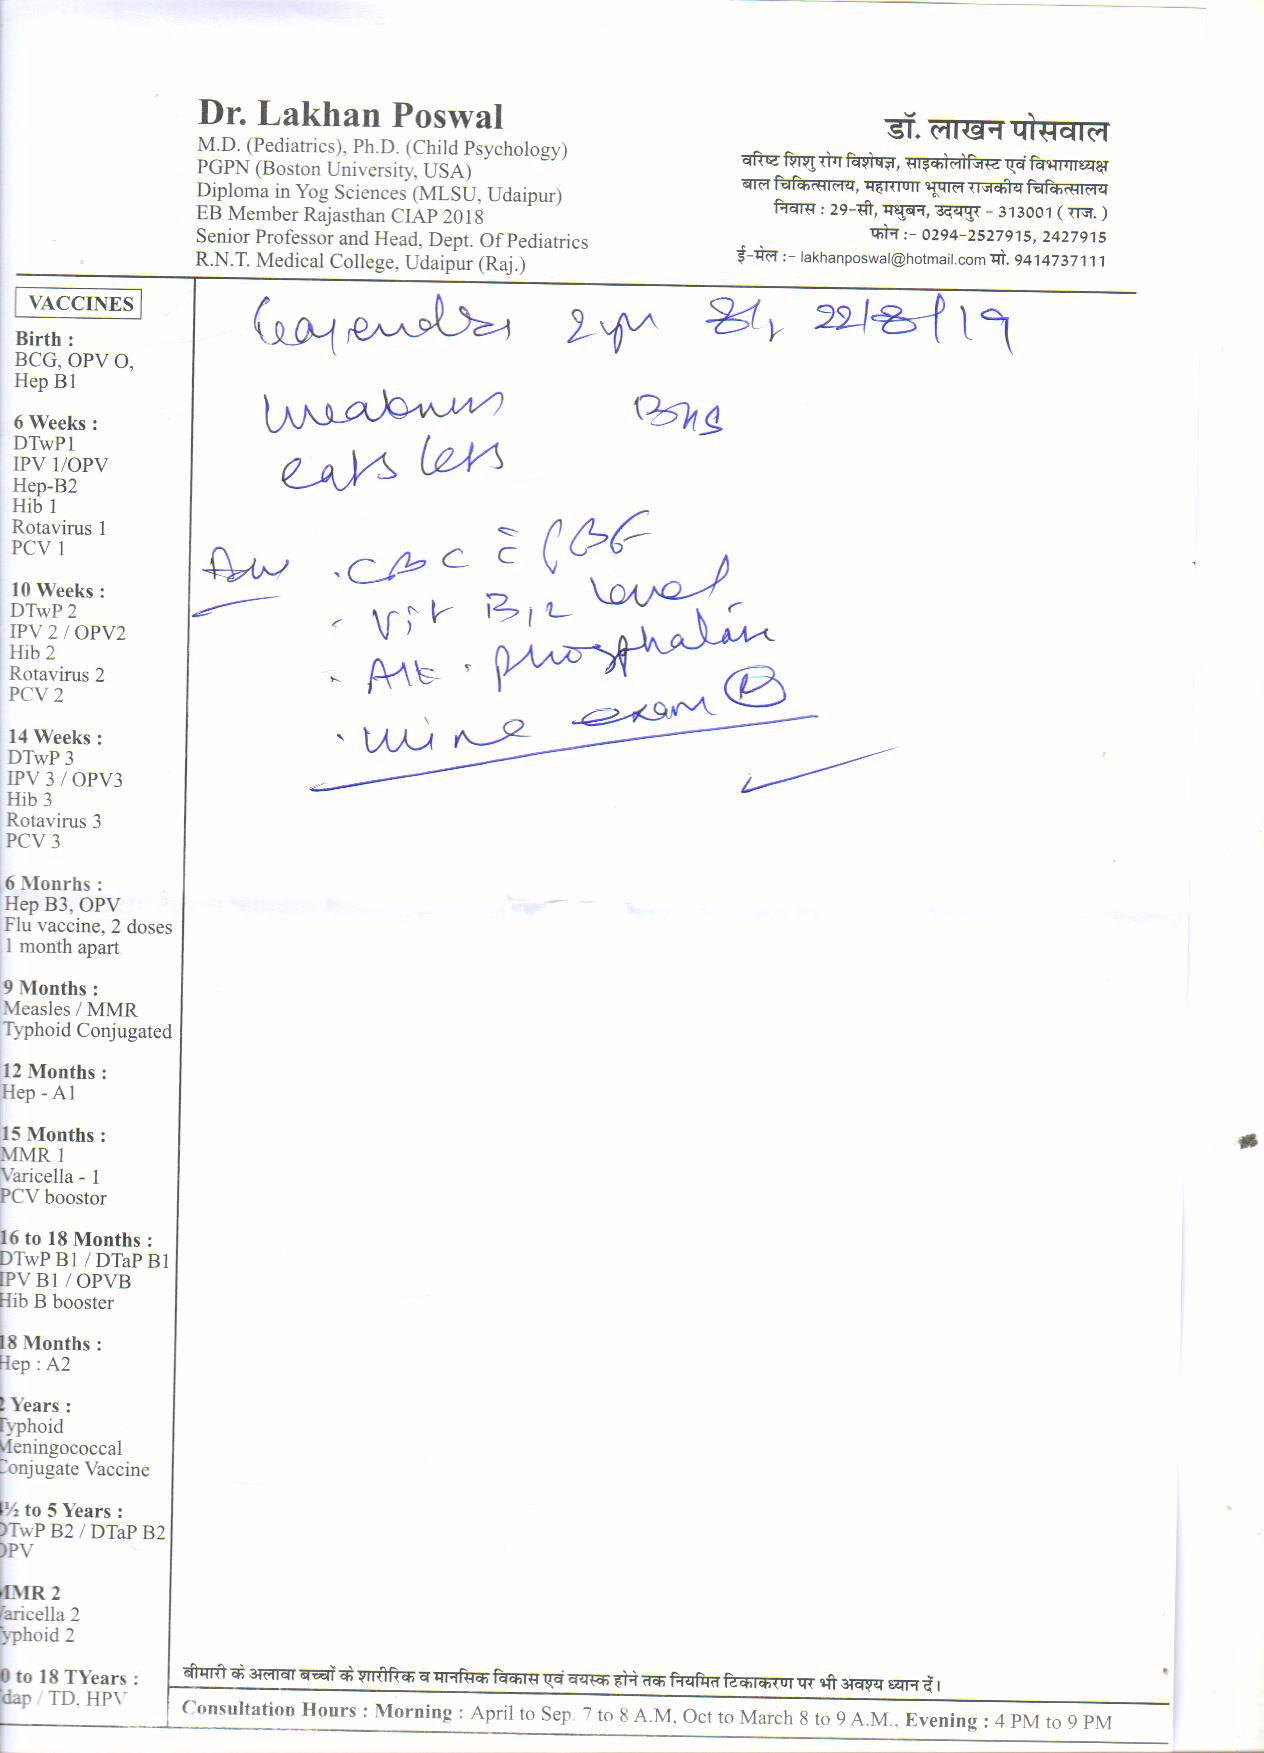 Dr. Lakhan Poswal
M.D. (Pediatrics), Ph.D. (Child Psychology)
PGPN (Boston University, USA)
Diploma in Yog Sciences (MLSU, Udaipur)
EB Member Rajasthan CIAP 2018
Senior Professor and Head, Dept. Of Pediatrics
R.N.T. Medical College, Udaipur (Raj.)
डॉ. लाखन पोसवाल
वरिष्ट शिशु रोग विशेषज्ञ, साइकोलोजिस्ट एवं विभागाध्यक्ष
बाल चिकित्सालय, महाराणा भूपाल राजकीय चिकित्सालय
निवास : 29-सी, मधुबन, उदयपुर - 313001 ( राज. )
फोन :- 0294-2527915, 2427915
ई-मेल :- lakhanposwal@hotmail.com मो. 9414737111
VACCINES
Birth :
BCG, OPV O,
Hep B1
6 Weeks :
DTwP1
IPV 1/OPV
Hep-B2
Hib 1
Rotavirus 1
PCV 1
10 Weeks :
DTwP 2
IPV 2 / OPV2
Hib 2
Rotavirus 2
PCV 2
14 Weeks :
DTwP 3
IPV 3 / OPV3
Hib 3
Rotavirus 3
PCV 3
6 Monrhs :
Hep B3, OPV
Flu vaccine, 2 doses
1 month apart
9 Months :
Measles / MMR
Typhoid Conjugated
12 Months :
Hep - A1
15 Months :
MMR 1
Varicella - 1
PCV boostor
16 to 18 Months :
DTwP B1 / DTaP B1
IPV B1 / OPVB
Hib B booster
18 Months :
Hep : A2
2 Years :
Typhoid
Meningococcal
Conjugate Vaccine
½ to 5 Years :
DTwP B2 / DTaP B2
OPV
MMR 2
Varicella 2
Typhoid 2
0 to 18 TYears :
dap / TD, HPV
Gajendra 2yr 22/8/19
weakness
eats less
Adv . CBC c̄ PBF
. Vit B12 level
. Alk . phosphatase
. urine exam (R)
बीमारी के अलावा बच्चों के शारीरिक व मानसिक विकास एवं वयस्क होने तक नियमित टिकाकरण पर भी अवश्य ध्यान दें।
Consultation Hours : Morning : April to Sep. 7 to 8 A.M, Oct to March 8 to 9 A.M., Evening : 4 PM to 9 PM